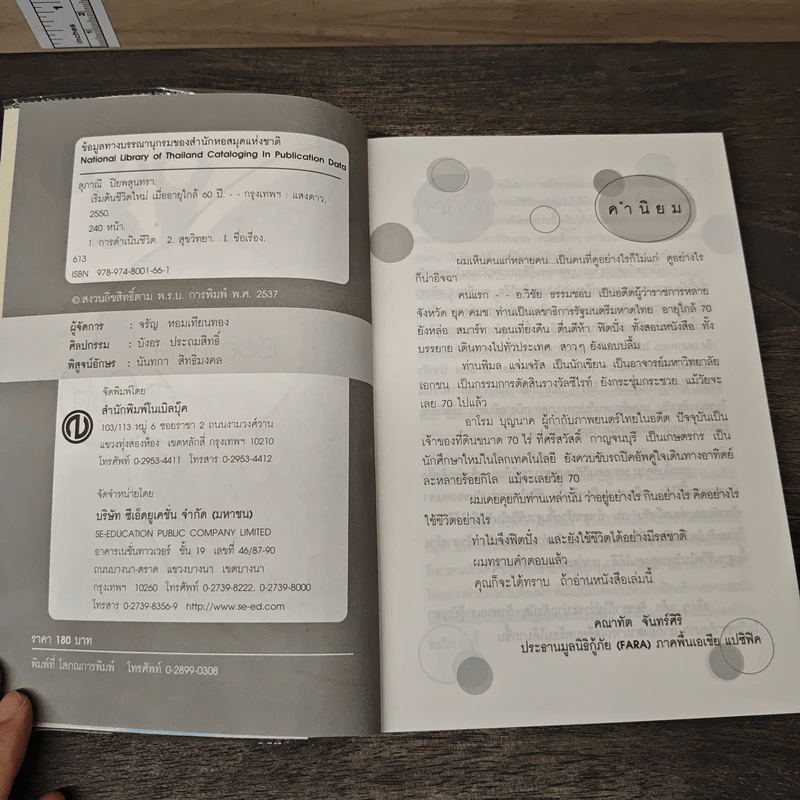 1
inches
2
ข้อมูลทางบรรณานุกรมของสำนักหอสมุดแห่งชาติ
National Library of Thailand Cataloging In Publication Data
สุภาณี ปิยพสุนทรา.
เริ่มต้นชีวิตใหม่ เมื่ออายุใกล้ 60 ปี. - - กรุงเทพฯ : แสงดาว,
2550.
240 หน้า.
1. การดำเนินชีวิต. 2. สุขวิทยา. I. ชื่อเรื่อง.
613
ISBN 978-974-8001-66-1
© สงวนลิขสิทธิ์ตาม พ.ร.บ. การพิมพ์ พ.ศ. 2537
ผู้จัดการ : จรัญ หอมเทียนทอง
ศิลปกรรม : บังอร ประถมสิทธิ์
พิสูจน์อักษร : นันทกา สิทธิมงคล
จัดพิมพ์โดย
สำนักพิมพ์โนเบิลบุ๊ค
103/113 หมู่ 6 ซอยราชา 2 ถนนงามวงศ์วาน
แขวงทุ่งสองห้อง เขตหลักสี่ กรุงเทพฯ 10210
โทรศัพท์ 0-2953-4411 โทรสาร 0-2953-4412
จัดจำหน่ายโดย
บริษัท ซีเอ็ดยูเคชั่น จำกัด (มหาชน)
SE-EDUCATION PUBLIC COMPANY LIMITED
อาคารเนชั่นทาวเวอร์ ชั้น 19 เลขที่ 46/87-90
ถนนบางนา-ตราด แขวงบางนา เขตบางนา
กรุงเทพฯ 10260 โทรศัพท์ 0-2739-8222, 0-2739-8000
โทรสาร 0-2739-8356-9 http://www.se-ed.com
ราคา 180 บาท
พิมพ์ที่ โสภณการพิมพ์ โทรศัพท์ 0-2899-0308
คำนิยม
ผมเห็นคนแก่หลายคน...เป็นคนที่ดูอย่างไรก็ไม่แก่ ดูอย่างไร
ก็น่าอิจฉา
คนแรก - - อ.วิชัย ธรรมชอบ เป็นอดีตผู้ว่าราชการหลาย
จังหวัด ยุค คมช. ท่านเป็นเลขาธิการรัฐมนตรีมหาดไทย อายุใกล้ 70
ยังหล่อ สมาร์ท นอนเที่ยงคืน ตื่นตีห้า ฟิตปั๋ง ทั้งสอนหนังสือ ทั้ง
บรรยาย เดินทางไปทั่วประเทศ สาวๆ ยังแอบปลื้ม
ท่านพิมล แจ่มจรัส เป็นนักเขียน เป็นอาจารย์มหาวิทยาลัย
เอกชน เป็นกรรมการตัดสินรางวัลซีไรท์ ยังกระชุ่มกระชวย แม้วัยจะ
เลย 70 ไปแล้ว
อาโรม บุญนาค ผู้กำกับภาพยนตร์ไทยในอดีต ปัจจุบันเป็น
เจ้าของที่ดินขนาด 70 ไร่ ที่ศรีสวัสดิ์ กาญจนบุรี เป็นเกษตรกร เป็น
นักศึกษาใหม่ในโลกเทคโนโลยี ยังควบขับรถปิคอัพคู่ใจเดินทางอาทิตย์
ละหลายร้อยกิโล แม้จะเลยวัย 70
ผมเคยคุยกับท่านเหล่านั้น ว่าอยู่อย่างไร กินอย่างไร คิดอย่างไร
ใช้ชีวิตอย่างไร
ทำไมจึงฟิตปั๋ง และยังใช้ชีวิตได้อย่างมีรสชาติ
ผมทราบคำตอบแล้ว
คุณก็จะได้ทราบ ถ้าอ่านหนังสือเล่มนี้
คณาทัต จันทร์ศิริ
ประธานมูลนิธิกู้ภัย (FARA) ภาคพื้นเอเชีย แปซิฟิค